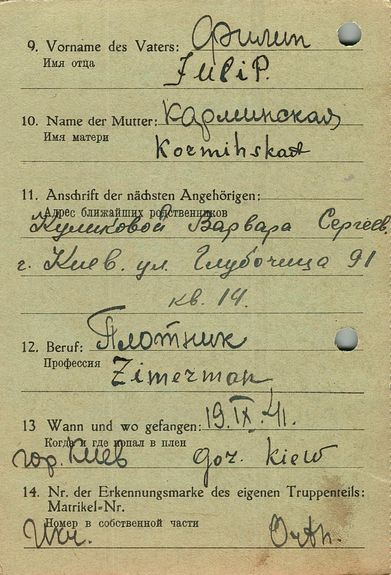 9. Vorname des Vaters: Филип
Имя отца
Fuliр.
10. Name der Mutter: Карминская
Имя матери
Kormihskaя
11. Anschrift der nächsten Angehörigen:
Адрес ближайших родственников
Куликовой Варвара Сергеев.
г. Киев. ул. Глубочица 91
кв. 14.
12. Beruf: Плотник
Профессия
Zimerman
13 Wann und wo gefangen: 19.IX.41.
Когда и где попал в плен
гор. Киев goz. kiew
14. Nr. der Erkennungsmarke des eigenen Truppenteils:
Matrikel-Nr.
Номер в собственной части
Ukr. Orth.